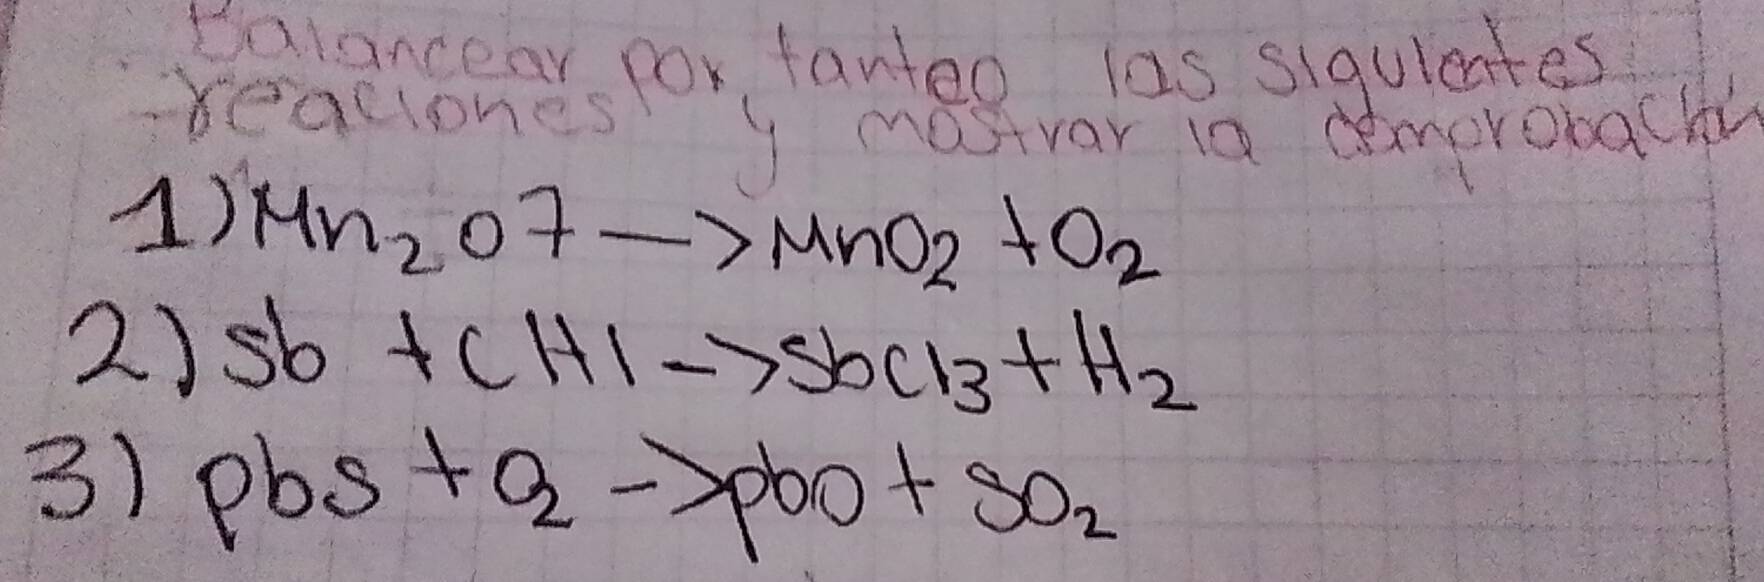 Balancear por tanteo las siguientes
reaciones y mostrar la comprobación
1) Mn₂O7 —> MnO₂ + O₂
2) sb + CHl —> SbCl3 + H₂
3) pbs + O₂ —> pbO + SO₂